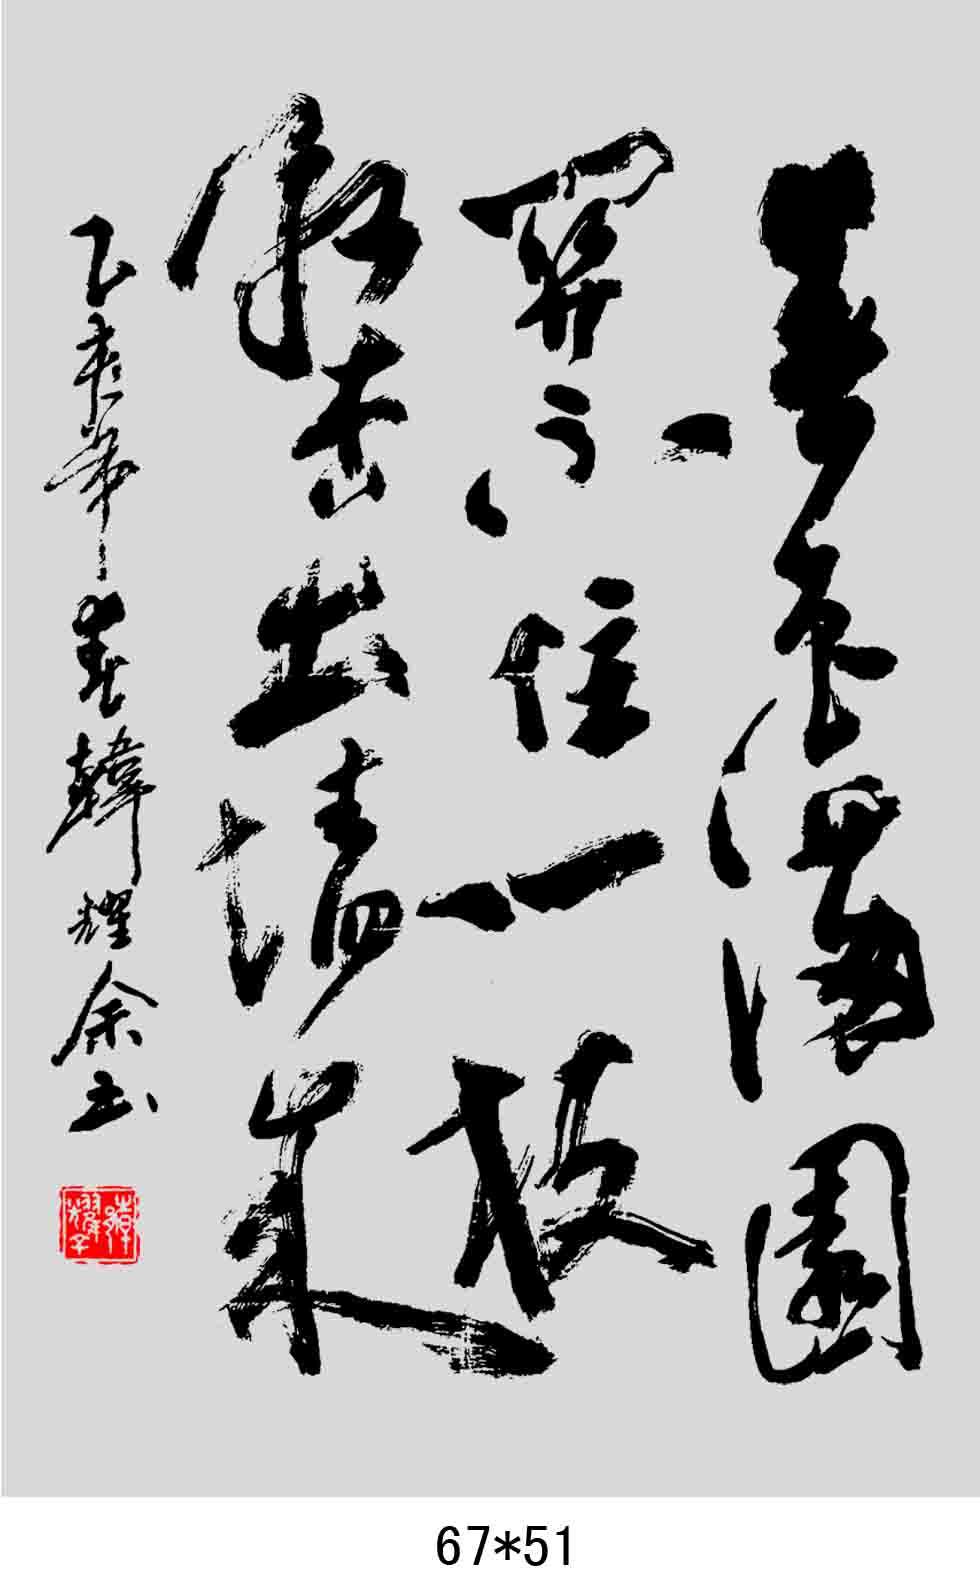 春色滿園
關不住一枝
紅杏出墻來
乙亥年春韓耀余书
67*51